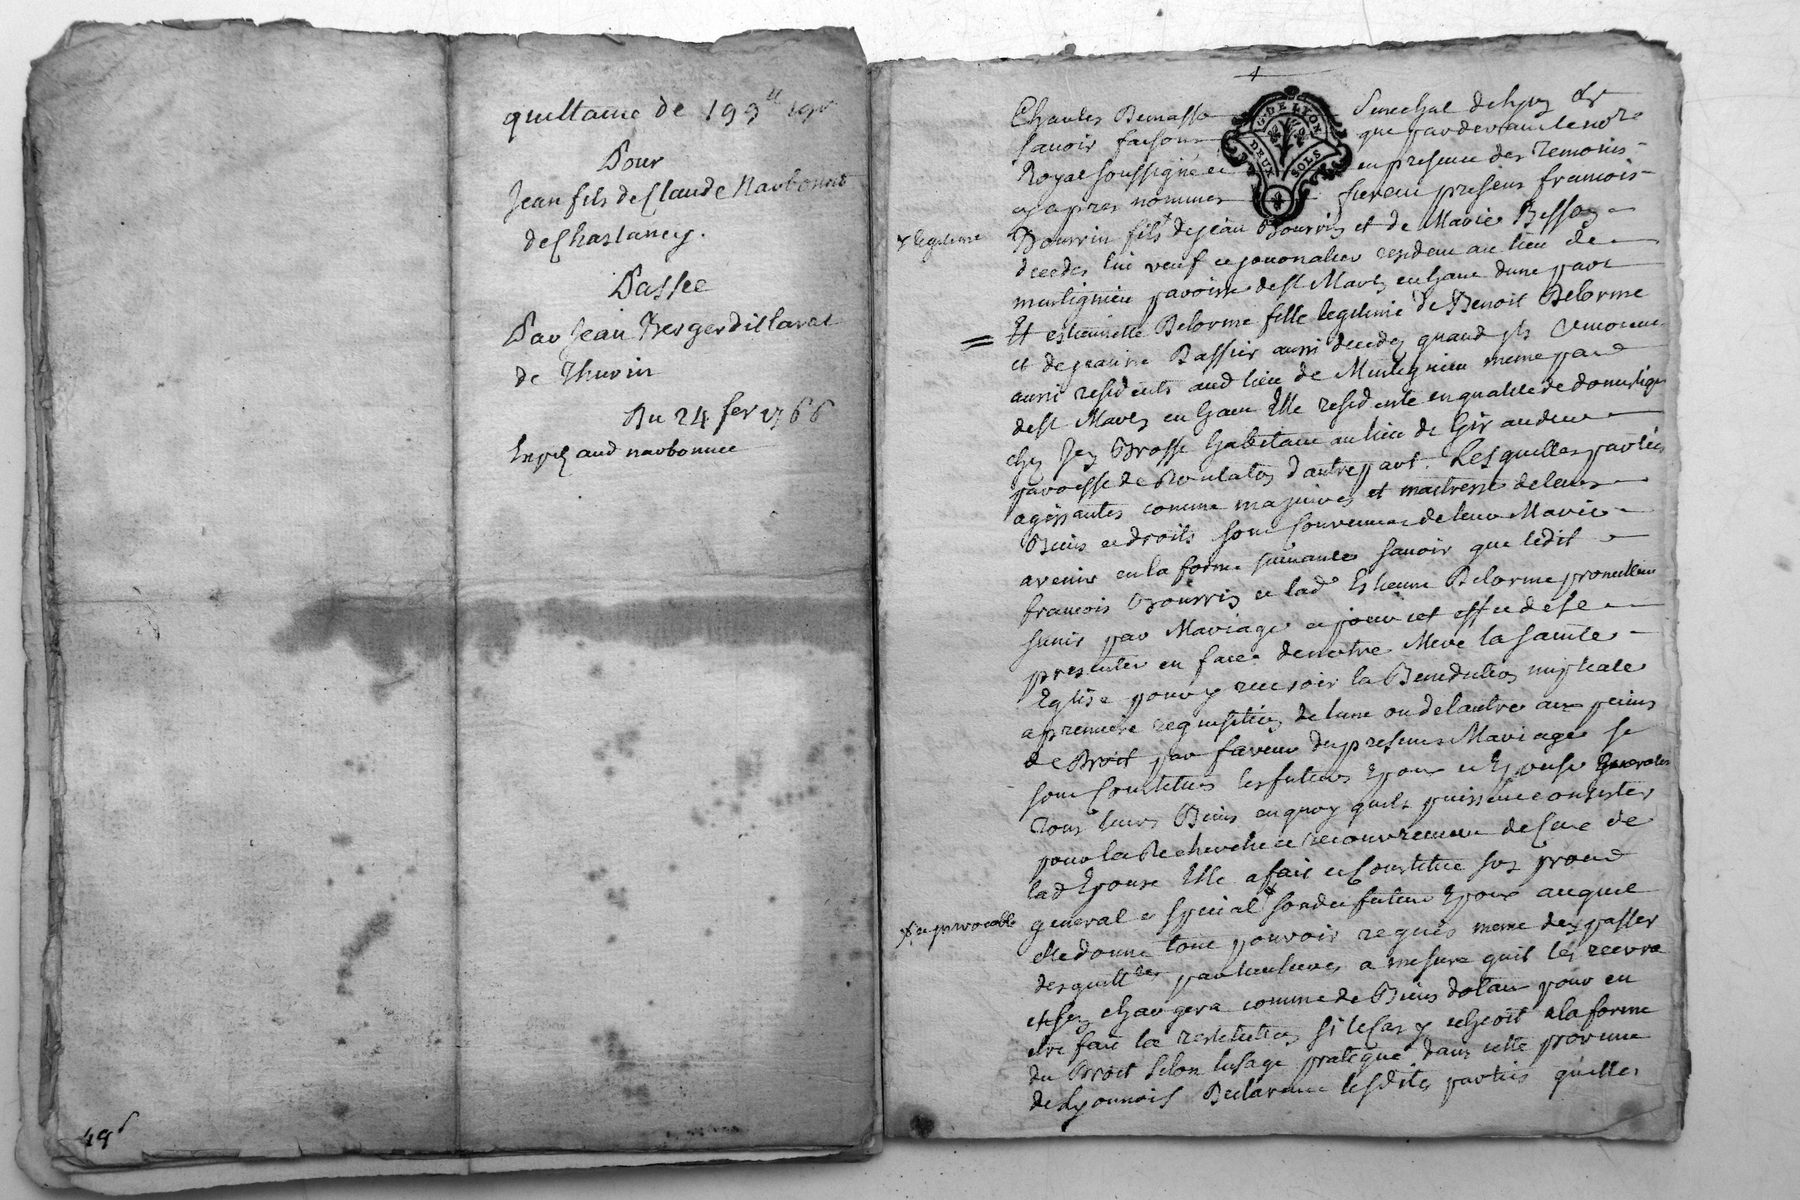 quittance de 199ᵗᵗ 19ˢ
Pour
Jean fils de Claude Narbonnet
de Chastancy.
Passée
Par Jean Berger dillavet
de Thurin
Du 24 fer 1766
Exp aud narbonnet
48ˢ
Charles Demasso Senechal de Lyon &
G. DE LYON
DEUX SOLS
Savoir faisons que pardevant le no.re
Royal soussigné et en presence des temoins
cy apres nommés furent presens francois
x legitime
Bourrin fils x de jean Bourrin et de Marie Besson
decedes lui veuf et journalier resident au lieu de
murtignieu paroisse de st Martin en haut dune part
Et estiennette Delorme fille legitime de Benoit Delorme
et de jeanne Bassier aussi decedes quand ils vivoient
aussi residents aud lieu de Murtignieu meme par
de st Martin en haut Elle residente en qualité de domestique
chez Brosse habitant au lieu de Giraudiere
paroisse de Rontalon d'autre part. Lesquelles parties
agissantes comme majeures et maitresse de leurs
Biens et droits sont convenues de leur Mariage
avenir en la forme suivante savoir que ledit
francois Bourrin et lad.e Estienne Delorme promettent
sunir par Mariage et pour cet effet de se
presenter en face de notre Mere la sainte
Eglise pour y recevoir la Benediction nuptiale
a premiere requisition de lune ou de lautre aux peines
de Droit par faveur du present Mariage se
sont Constitués les futurs Epoux et Epouse Generalement
tous leurs Biens en quoy quils puissent consister
pour la Recherche et recouvrement de Ceux de
lad Epouse Elle a fait et Constitué son procur
x irrevocable
general et special x sondit futur Epoux auquel
elle donne tout pouvoir requis meme den passer
des quitt.ces particulieres a mesure quil les recevra
et sen chargera comme de Biens dotaux pour en
etre fait la restitution si le Cas y echeoit a la forme
du Droit selon lusage pratiqué dans cette province
de Lyonnois Declarant lesdites parties quelles